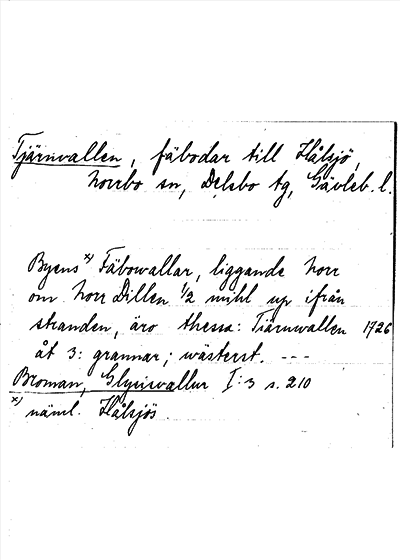 Tjärnvallen, fäbodar till Hålsjö,
Norrbo sn, Delsbo tg, Gävleb. l.
Byens x) Fäbowallar, liggande norr
om Norr Dillen 1/2 mihl up ifrån
stranden, äro thessa: Tiärnwallen 1726
åt 3: grannar; wästerst. ---
Broman, Glysisvallur I:3 s. 210
x) näml. Hålsjös.